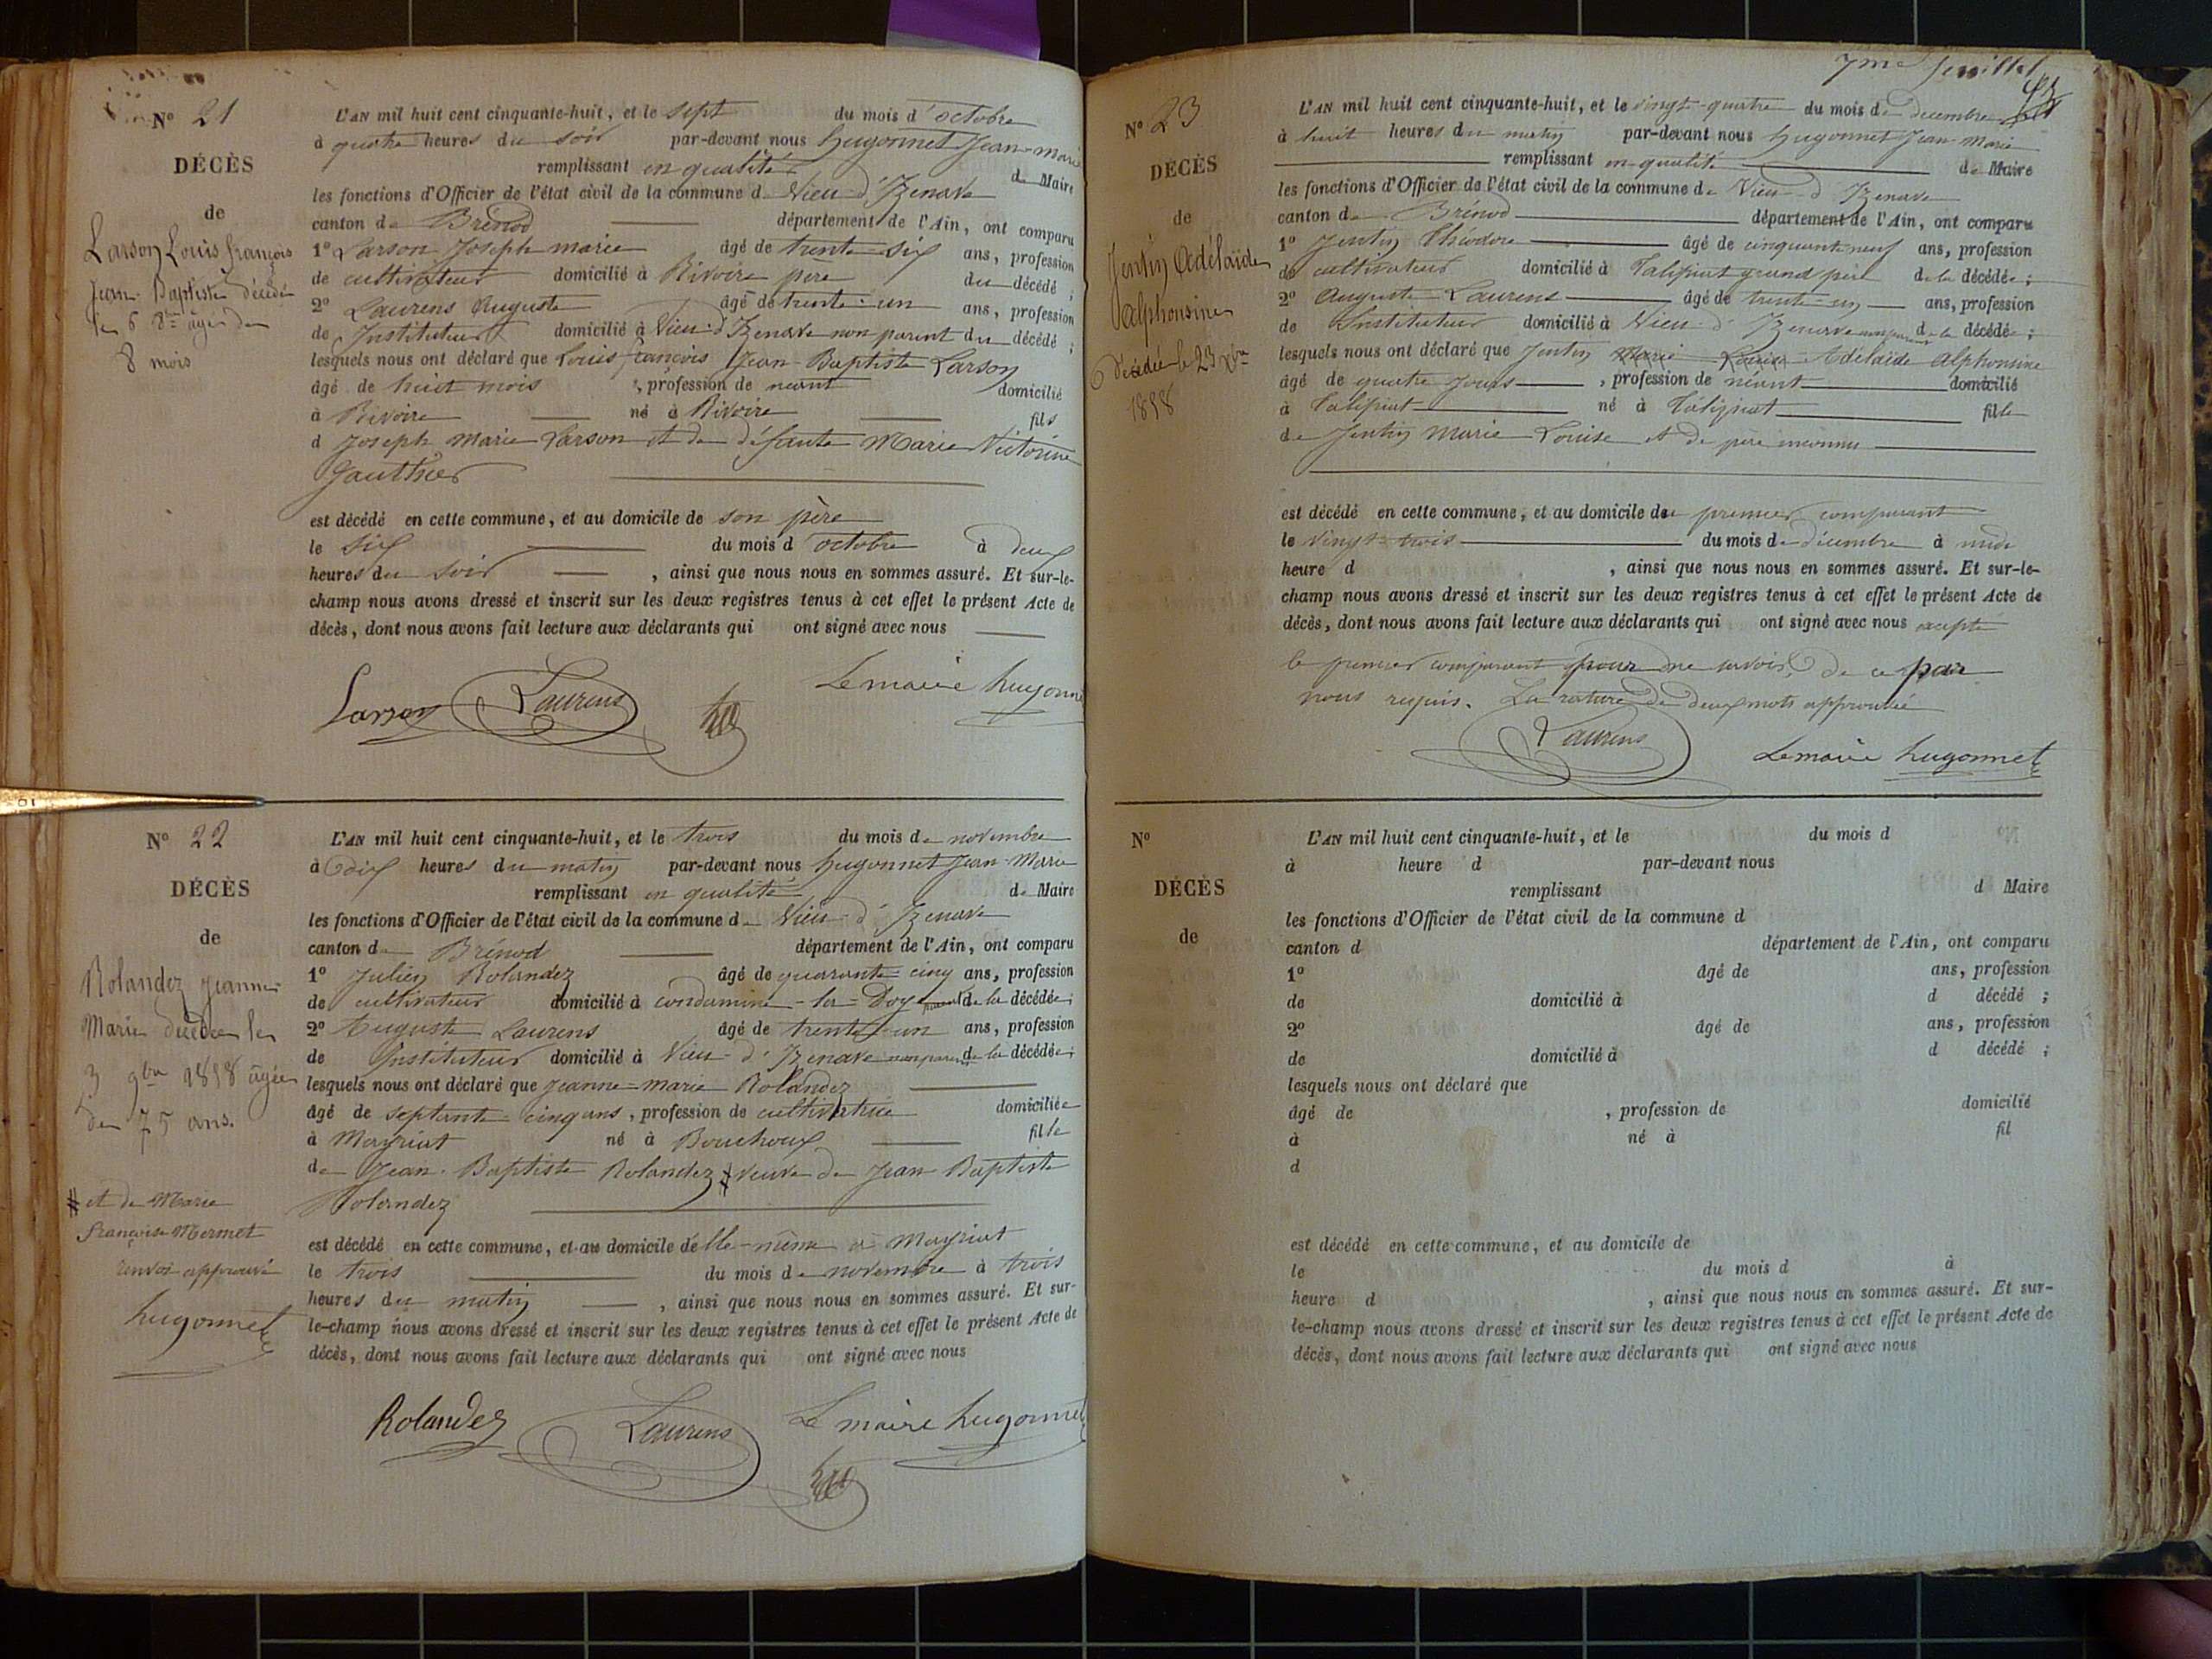 N° 21
DÉCÈS
de
Larson Louis françois
Jean-Baptiste décédé
le 6 8bre âgé de
8 mois
L'AN mil huit cent cinquante-huit, et le sept du mois d'octobre
à quatre heures du soir par-devant nous hugonnet Jean-marie
remplissant en qualité de Maire
les fonctions d'Officier de l'état civil de la commune de Vieu-d'Izenave
canton de Brénod département de l'Ain, ont comparu
1° Larson Joseph marie âgé de trente-six ans, profession
de cultivateur domicilié à Rivoire père du décédé ;
2° Laurens Auguste âgé de trente-un ans, profession
de Instituteur domicilié à Vieu-d'Izenave non parent du décédé ;
lesquels nous ont déclaré que Louis françois Jean-Baptiste Larson
âgé de huit mois, profession de néant domicilié
à Rivoire né à Rivoire fils
d Joseph Marie Larson et de défunte Marie Victorine
Gauthier
est décédé en cette commune, et au domicile de son père
le six du mois d'octobre à deux
heures du soir, ainsi que nous nous en sommes assuré. Et sur-le-
champ nous avons dressé et inscrit sur les deux registres tenus à cet effet le présent Acte de
décès, dont nous avons fait lecture aux déclarants qui ont signé avec nous
Larson Laurens Le maire hugonnet
N° 22
DÉCÈS
de
Rolandez Jeanne
Marie décédée le
3 9bre 1858 âgée
de 75 ans.
# et de Marie
françoise Mermet
renvoi approuvé
hugonnet
L'AN mil huit cent cinquante-huit, et le trois du mois de novembre
à dix heures du matin par-devant nous hugonnet Jean-Marie
remplissant en qualité de Maire
les fonctions d'Officier de l'état civil de la commune de Vieu-d'Izenave
canton de Brénod département de l'Ain, ont comparu
1° Julien Rolandez âgé de quarante-cinq ans, profession
de cultivateur domicilié à condamine-la-Doye de la décédée ;
2° Auguste Laurens âgé de trente-un ans, profession
de Instituteur domicilié à Vieu-d'Izenave non parent de la décédée ;
lesquels nous ont déclaré que Jeanne-marie Rolandez
âgé de septante-cinq ans, profession de cultivatrice domiciliée
à Mayriat né à Bouchoux fille
de Jean-Baptiste Rolandez # veuve de Jean-Baptiste
Rolandez
est décédé en cette commune, et au domicile d'elle-même à Mayriat
le trois du mois de novembre à trois
heures du matin, ainsi que nous nous en sommes assuré. Et sur-
le-champ nous avons dressé et inscrit sur les deux registres tenus à cet effet le présent Acte de
décès, dont nous avons fait lecture aux déclarants qui ont signé avec nous
Rolandez Laurens Le maire hugonnet
7me feuillet
N° 23
DÉCÈS
de
Jentin Adélaïde
alphonsine
Décédée le 23 Xbre
1858
L'AN mil huit cent cinquante-huit, et le vingt-quatre du mois de decembre
à huit heures du matin par-devant nous hugonnet Jean-Marie
remplissant en qualité de Maire
les fonctions d'Officier de l'état civil de la commune de Vieu-d'Izenave
canton de Brénod département de l'Ain, ont comparu
1° Jentin Théodore âgé de cinquante neuf ans, profession
de cultivateur domicilié à Talipiat grand père de la décédée ;
2° Auguste Laurens âgé de trente-un ans, profession
de Instituteur domicilié à Vieu-d'Izenave non parent de la décédée ;
lesquels nous ont déclaré que Jentin Marie Louise Adélaïde alphonsine
âgé de quatre jours, profession de néant domicilié
à Talipiat né à Talipiat fille
de Jentin Marie Louise et de père inconnu
est décédé en cette commune, et au domicile du premier comparant
le vingt-trois du mois de décembre à midi
heure d , ainsi que nous nous en sommes assuré. Et sur-le-
champ nous avons dressé et inscrit sur les deux registres tenus à cet effet le présent Acte de
décès, dont nous avons fait lecture aux déclarants qui ont signé avec nous excepté
le premier comparant pour ne savoir, de ce par
nous requis. La rature de deux mots approuvée
Laurens Le maire hugonnet
N°
DÉCÈS
de
L'AN mil huit cent cinquante-huit, et le du mois d
à heure d par-devant nous
remplissant d Maire
les fonctions d'Officier de l'état civil de la commune d
canton d département de l'Ain, ont comparu
1° âgé de ans, profession
de domicilié à d décédé ;
2° âgé de ans, profession
de domicilié à d décédé ;
lesquels nous ont déclaré que
âgé de , profession de domicilié
à né à fil
d
est décédé en cette commune, et au domicile de
le du mois d à
heure d , ainsi que nous nous en sommes assuré. Et sur-
le-champ nous avons dressé et inscrit sur les deux registres tenus à cet effet le présent Acte de
décès, dont nous avons fait lecture aux déclarants qui ont signé avec nous